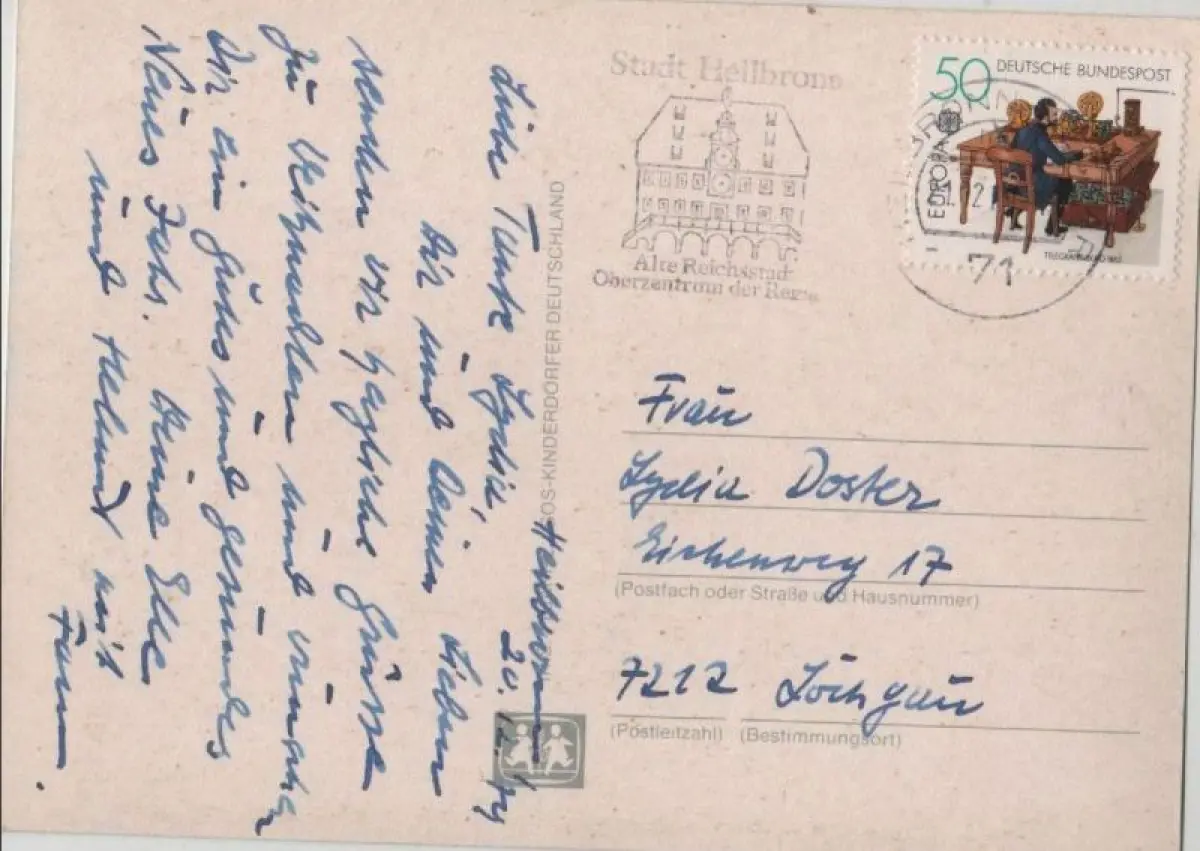 Heilbronn
20.12.79
Liebe Tante Lydia,
Dir und Deinen Lieben
senden wir herzliche Grüsse
zu Weihnachten und wünschen
Dir ein gutes und gesundes
Neues Jahr. Deine Elle
und Helmut mit
Famm.
SOS-KINDERDÖRFER DEUTSCHLAND
Stadt Heilbronn
Alte Reichsstadt
Oberzentrum der
50 DEUTSCHE BUNDESPOST
EUROPA
71
Frau
Lydia Doster
Eichenweg 17
(Postfach oder Straße und Hausnummer)
7212 Löchgau
(Postleitzahl) (Bestimmungsort)